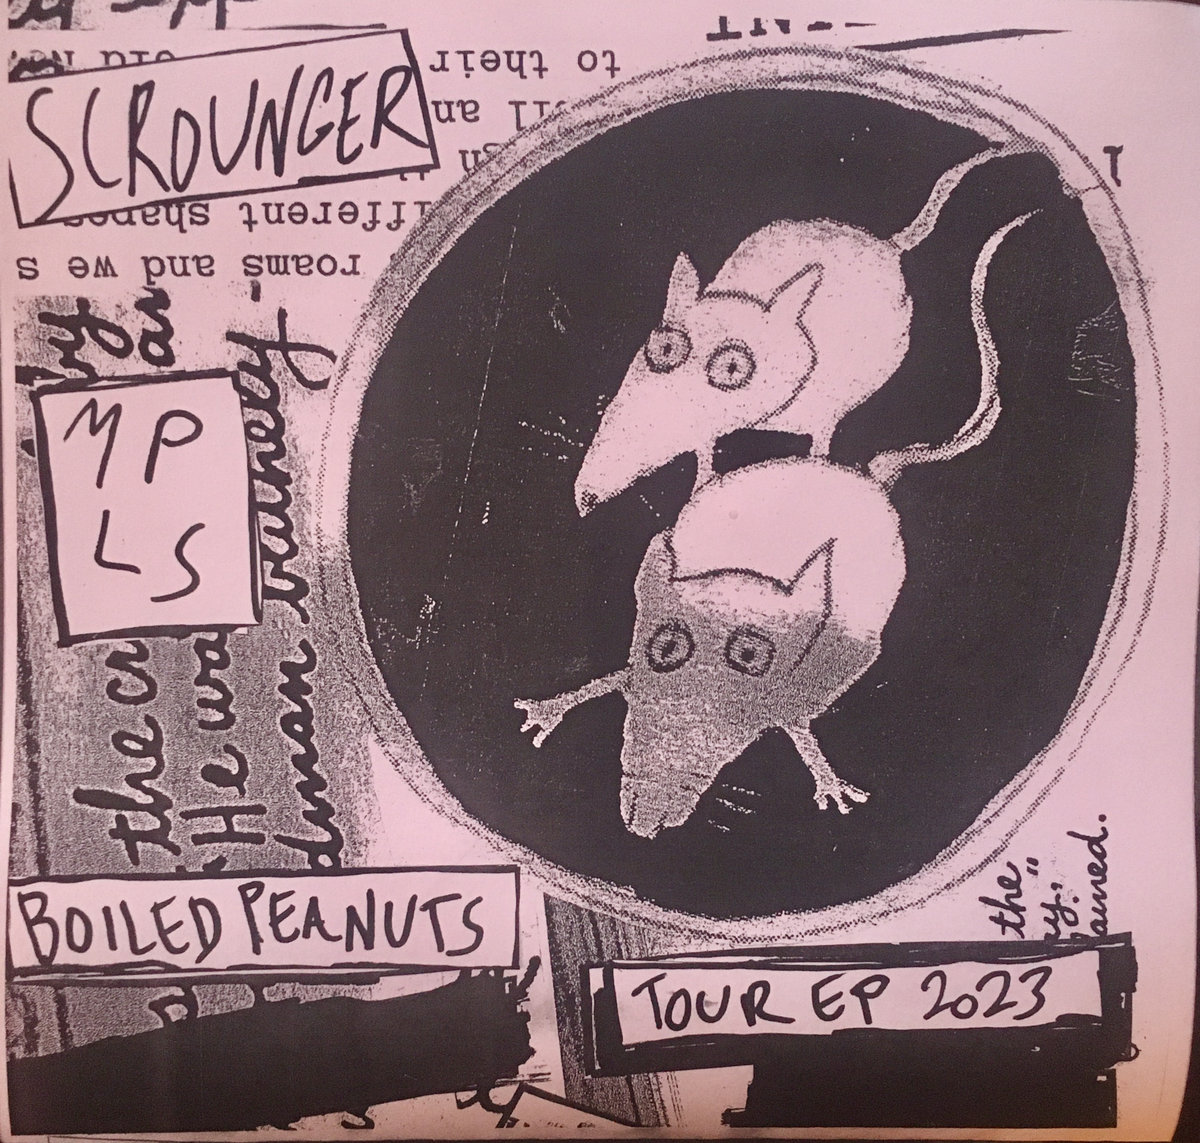 SCROUNGER
to their
an
different shapes
roams and we s
by
MP
LS
the cr
"He wa
BOILED PEANUTS
the
TOUR EP 2023